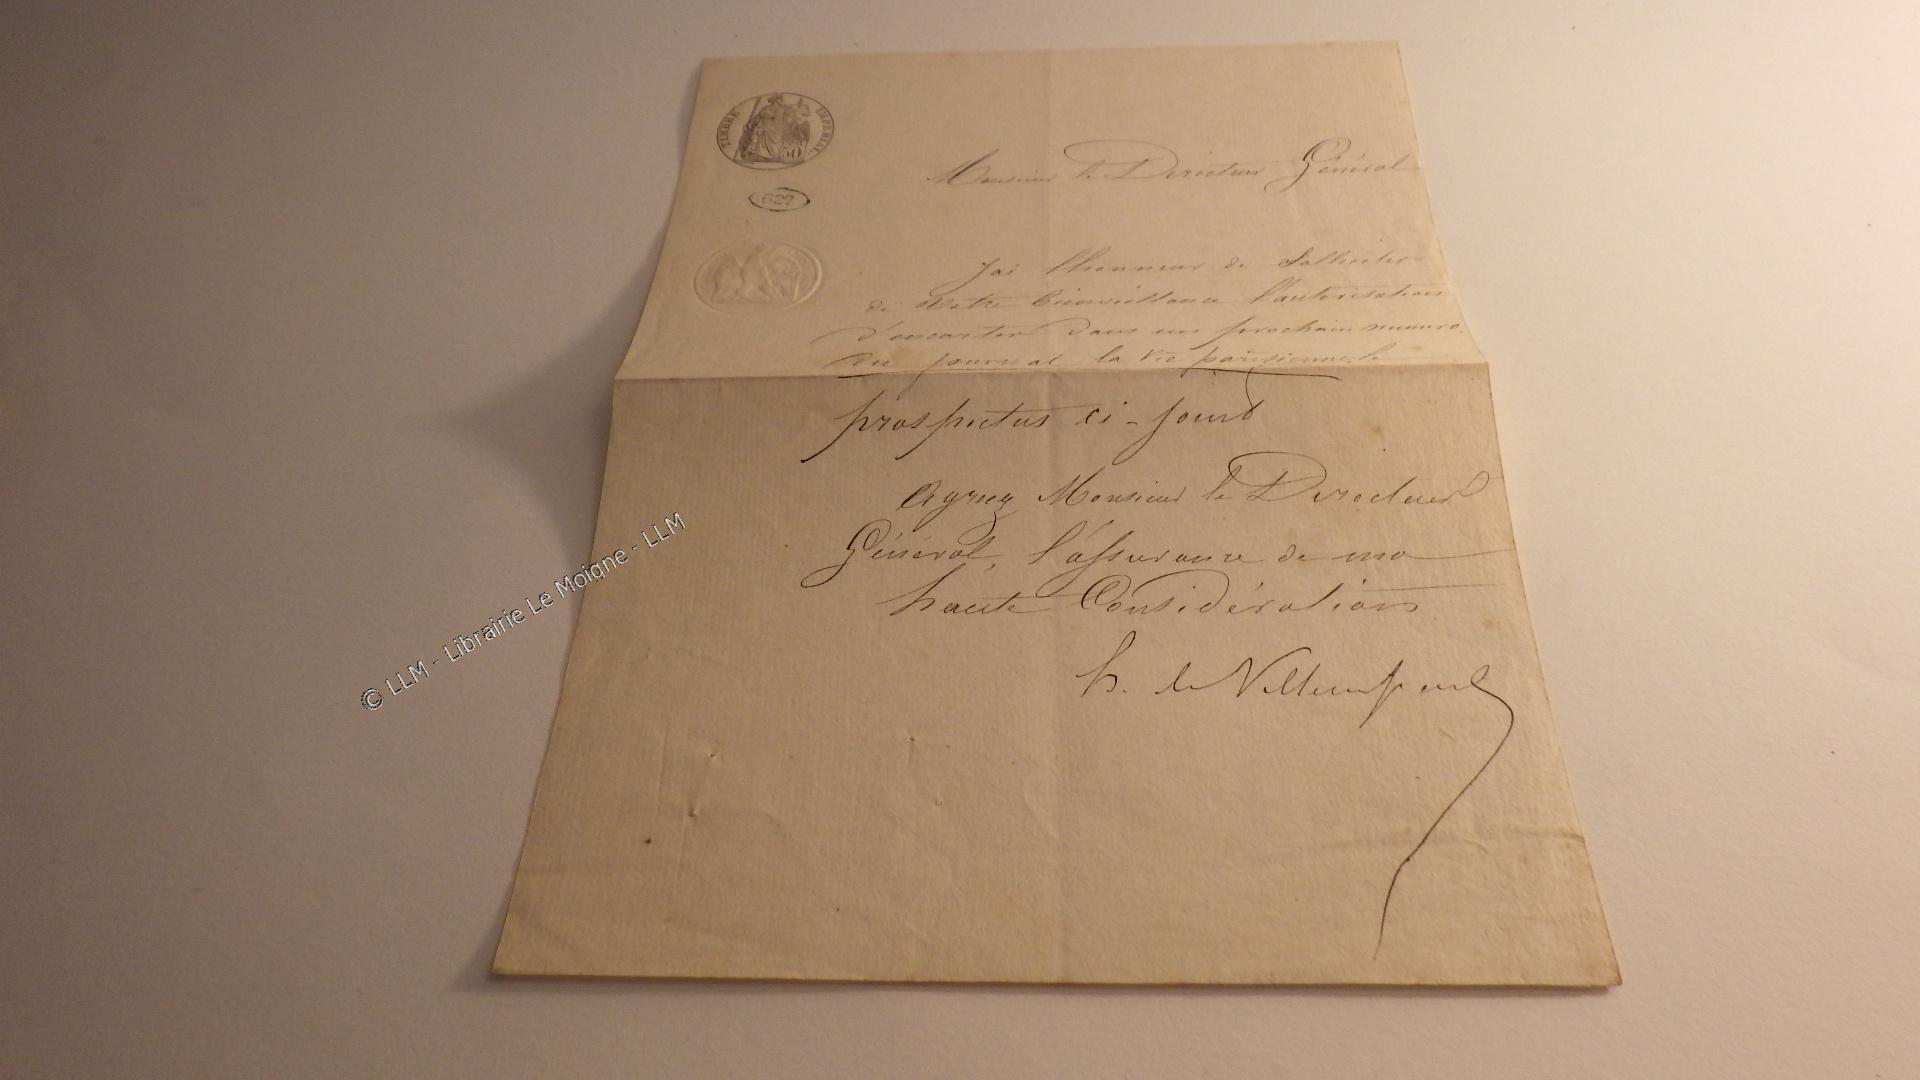 TIMBRE IMPERIAL
50
627
Monsieur le Directeur Général
J'ai l'honneur de Solliciter
de Votre bienveillance l'autorisation
d'encarter dans un prochain numéro
du journal la Vie parisienne le
prospectus ci-joint
Agréez Monsieur le Directeur
Général, l'assurance de ma
haute Considération
h. de
© LLM - Librairie Le Moigne - LLM